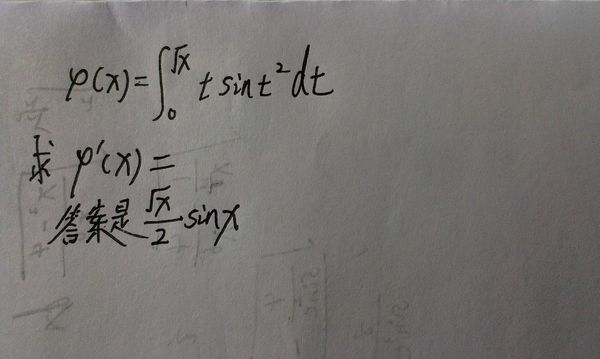 φ(x)=∫₀^√x t sint² dt
求 φ'(x)=
答案是 √x/2 sinx